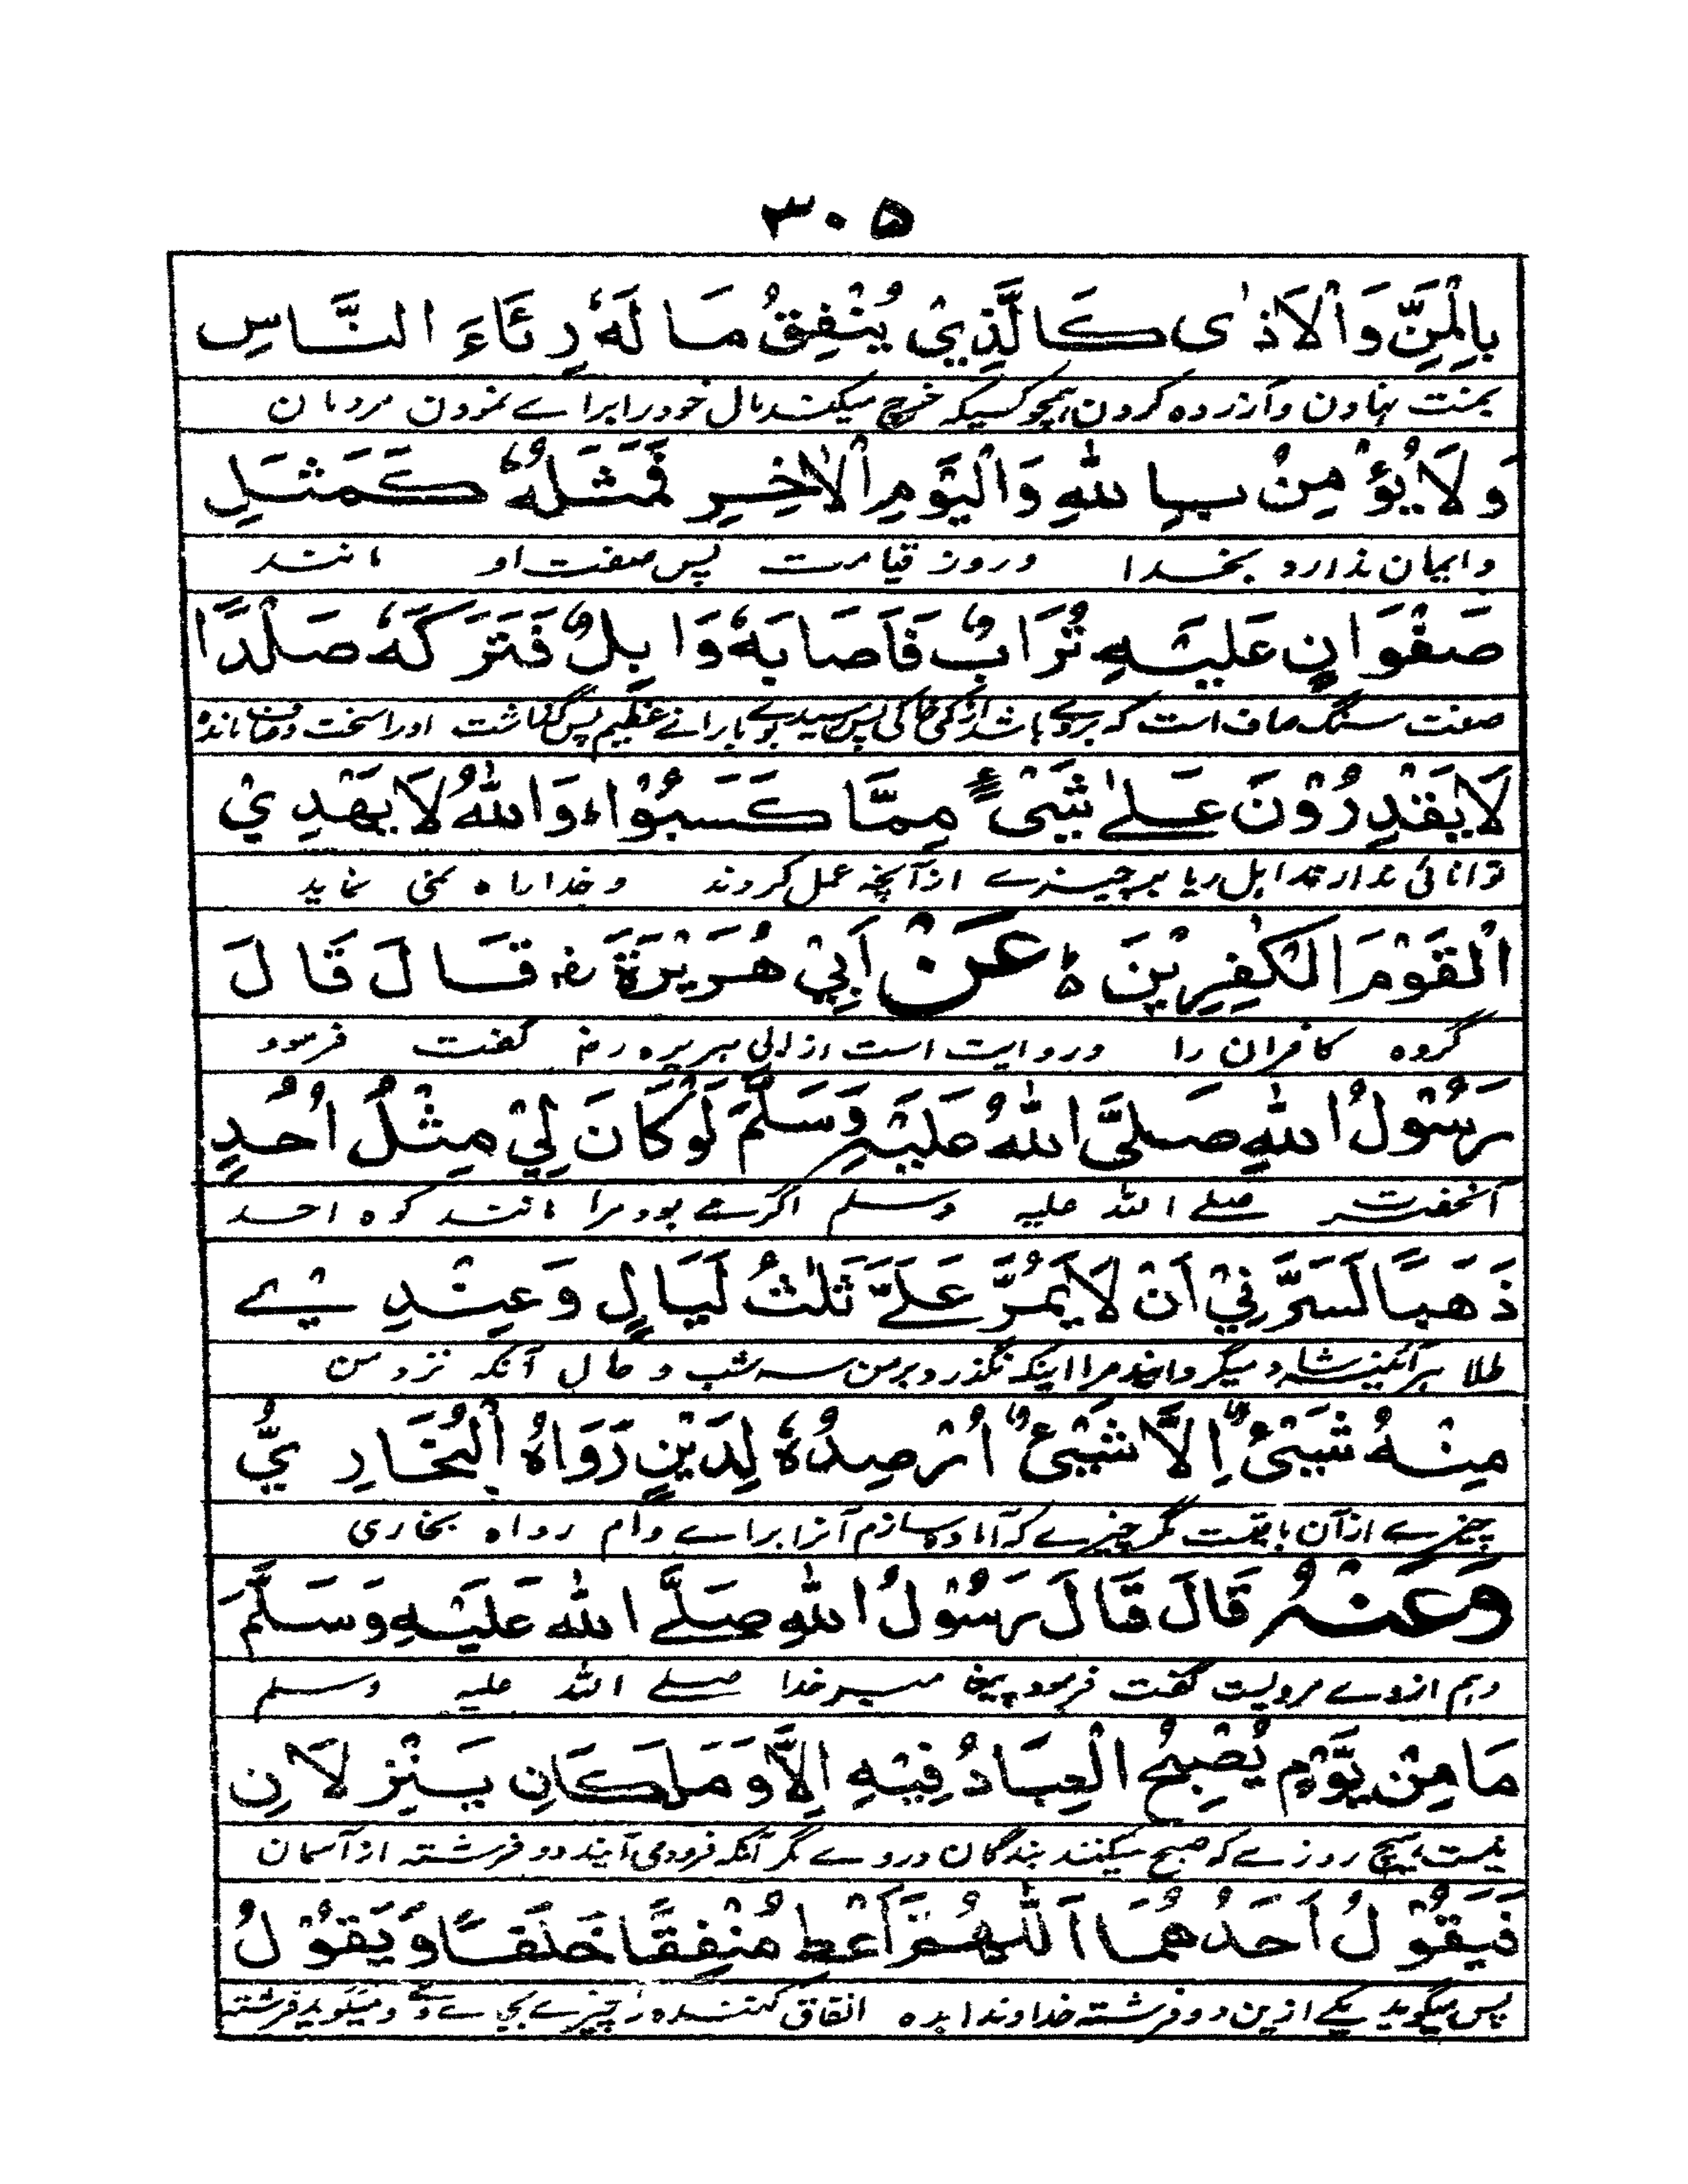 ۳۰۵
بِالْمَنِّ وَالْاَذٰى كَالَّذِيْ يُنْفِقُ مَالَهٗ رِئَاءَ النَّاسِ
بمنت نہادن و آزردہ کردن ہمچو کسیکہ خرچ میکند مال خود را براے نمودن مردمان
وَلَا يُؤْمِنْ بِاللّٰهِ وَالْيَوْمِ الْاٰخِرِ فَمَثَلُهٗ كَمَثَلِ
و ایمان ندارد بخدا و روز قیامت پس صفت او مانند
صَفْوَانٍ عَلَيْهِ تُرَابٌ فَاَصَابَهٗ وَابِلٌ فَتَرَكَهٗ صَلْدًا
صفت سنگ صاف است کہ بروے باشد اندکی خاکی پس رسید بوے بارانے عظیم پس گذاشت اورا سخت و صاف ماندہ
لَا يَقْدِرُوْنَ عَلٰے شَيْءٍ مِمَّا كَسَبُوْا وَاللّٰهُ لَا يَهْدِيْ
توانائی ندارند اہل ریا بر چیزے از آنچہ عمل کردند و خدا راہ نمی نماید
الْقَوْمَ الْكٰفِرِيْنَ ہ عَنْ اَبِيْ هُرَيْرَةَ رض قَالَ قَالَ
گروہ کافران را و روایت است از ابی ہریرہ رض گفت فرمود
رَسُوْلُ اللّٰهِ صَلَّى اللّٰهُ عَلَيْهِ وَسَلَّمَ لَوْ كَانَ لِيْ مِثْلُ اُحُدٍ
آنحضرت صلے اللہ علیہ وسلم اگر مے بود مرا مانند کوہ احد
ذَهَبًا لَسَرَّنِيْ اَنْ لَا يَمُرَّ عَلَيَّ ثَلٰثُ لَيَالٍ وَعِنْدِيْ
طلا ہر آئینہ شاد میگردانید مرا اینکہ نگذرد بر من سہ شب و حال آنکہ نزد من
مِنْهُ شَيْءٌ اِلَّا شَيْءٌ اُرْصِدُهٗ لِدَيْنٍ رَوَاهُ الْبُخَارِيُّ
چیزے از آن باقیست مگر چیزے کہ آمادہ سازم آنرا براے وام رواہ بخاری
وَعَنْهُ قَالَ قَالَ رَسُوْلُ اللّٰهِ صَلَّے اللّٰه عَلَيْهِ وَسَلَّمَ
و ہم از وے مرویست گفت فرمود پیغامبر خدا صلے اللہ علیہ وسلم
مَا مِنْ يَوْمٍ يُصْبِحُ الْعِبَادُ فِيْهِ اِلَّا وَمَلَكَانِ يَنْزِلَانِ
نیست ہیچ روزے کہ صبح میکنند بندگان در وے مگر آنکہ فرود می آیند دو فرشتہ از آسمان
فَيَقُوْلُ اَحَدُهُمَا اَللّٰهُمَّ اَعْطِ مُنْفِقًا خَلَفًا وَيَقُوْلُ
پس میگوید یکے ازین دو فرشتہ خداوندا بدہ انفاق کنندہ را چیزے بجاے وے و میگوید فرشتہ